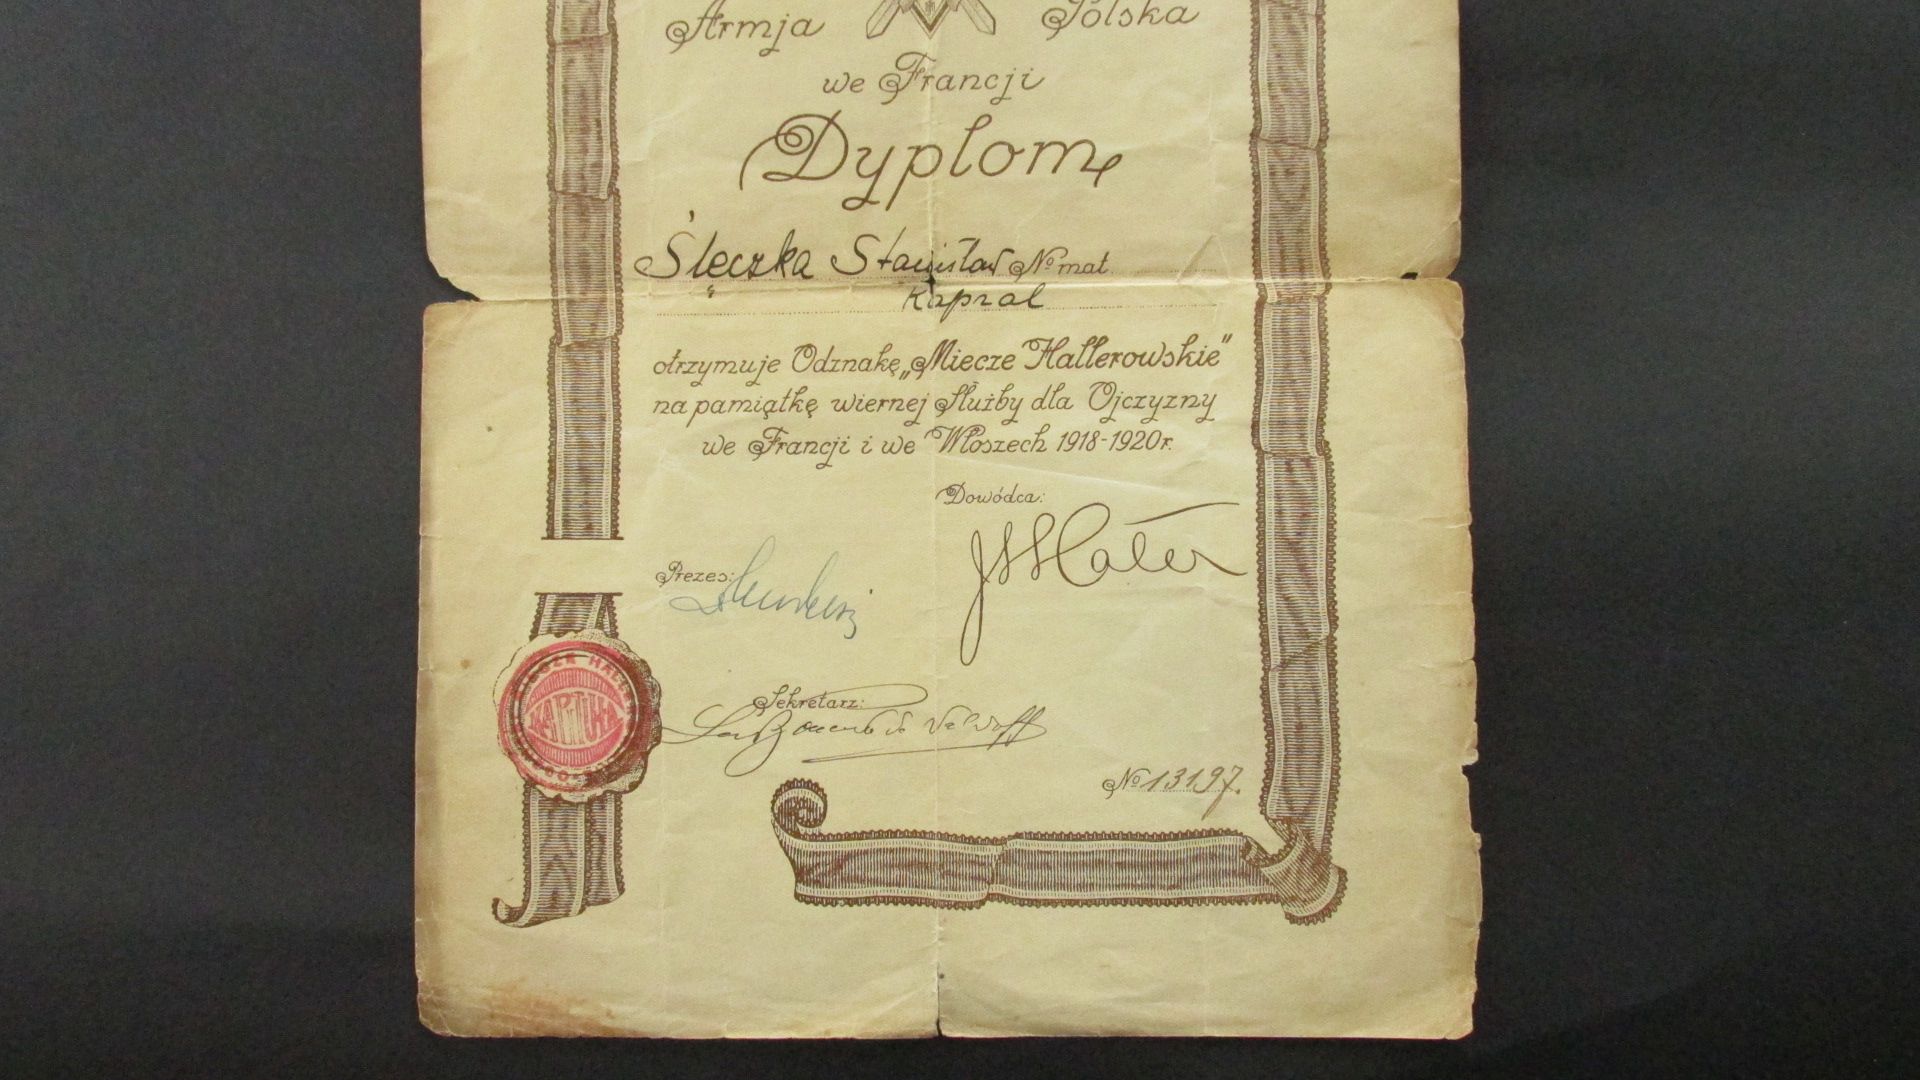 Armja Polska
we Francji
Dyplom
Ślęczka Stanisław No mat.
Kapral
otrzymuje Odznakę „Miecze Hallerowskie"
na pamiątkę wiernej Służby dla Ojczyzny
we Francji i we Włoszech 1918-1920 r.
Dowódca:
JHaller
Prezes:
Sekretarz:
KAPITUŁA
No 13197.